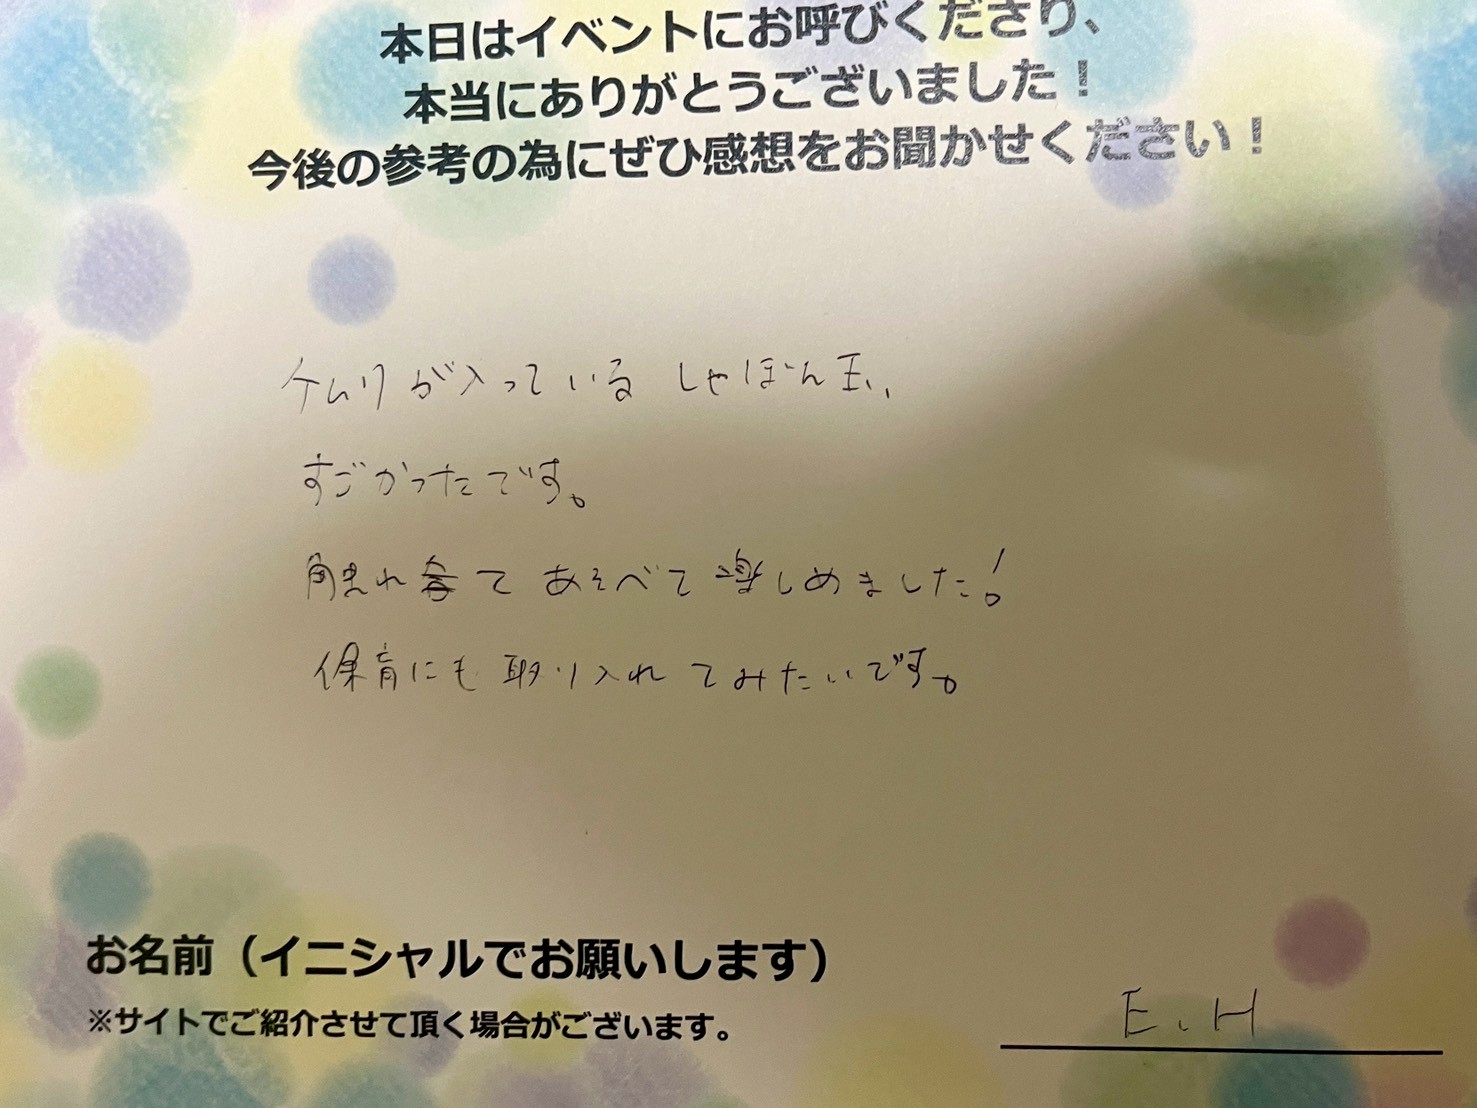 本日はイベントにお呼びくださり、
本当にありがとうございました！
今後の参考の為にぜひ感想をお聞かせください！
ケムリが入っている しゃぼん玉、
すごかったです。
触れて あそべて 楽しめました!
保育にも 取り入れてみたいです。
お名前（イニシャルでお願いします）
※サイトでご紹介させて頂く場合がございます。
E.H